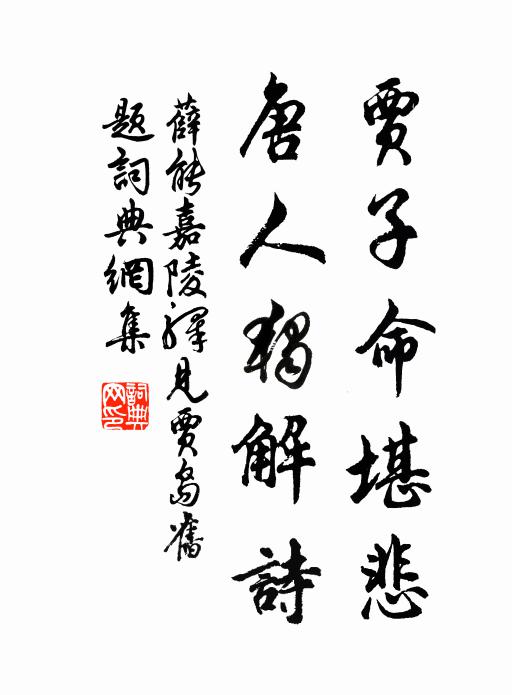 賈子命堪悲
唐人獨解詩
薛能嘉陵驛見賈島舊
題詞典網集
詞典網印